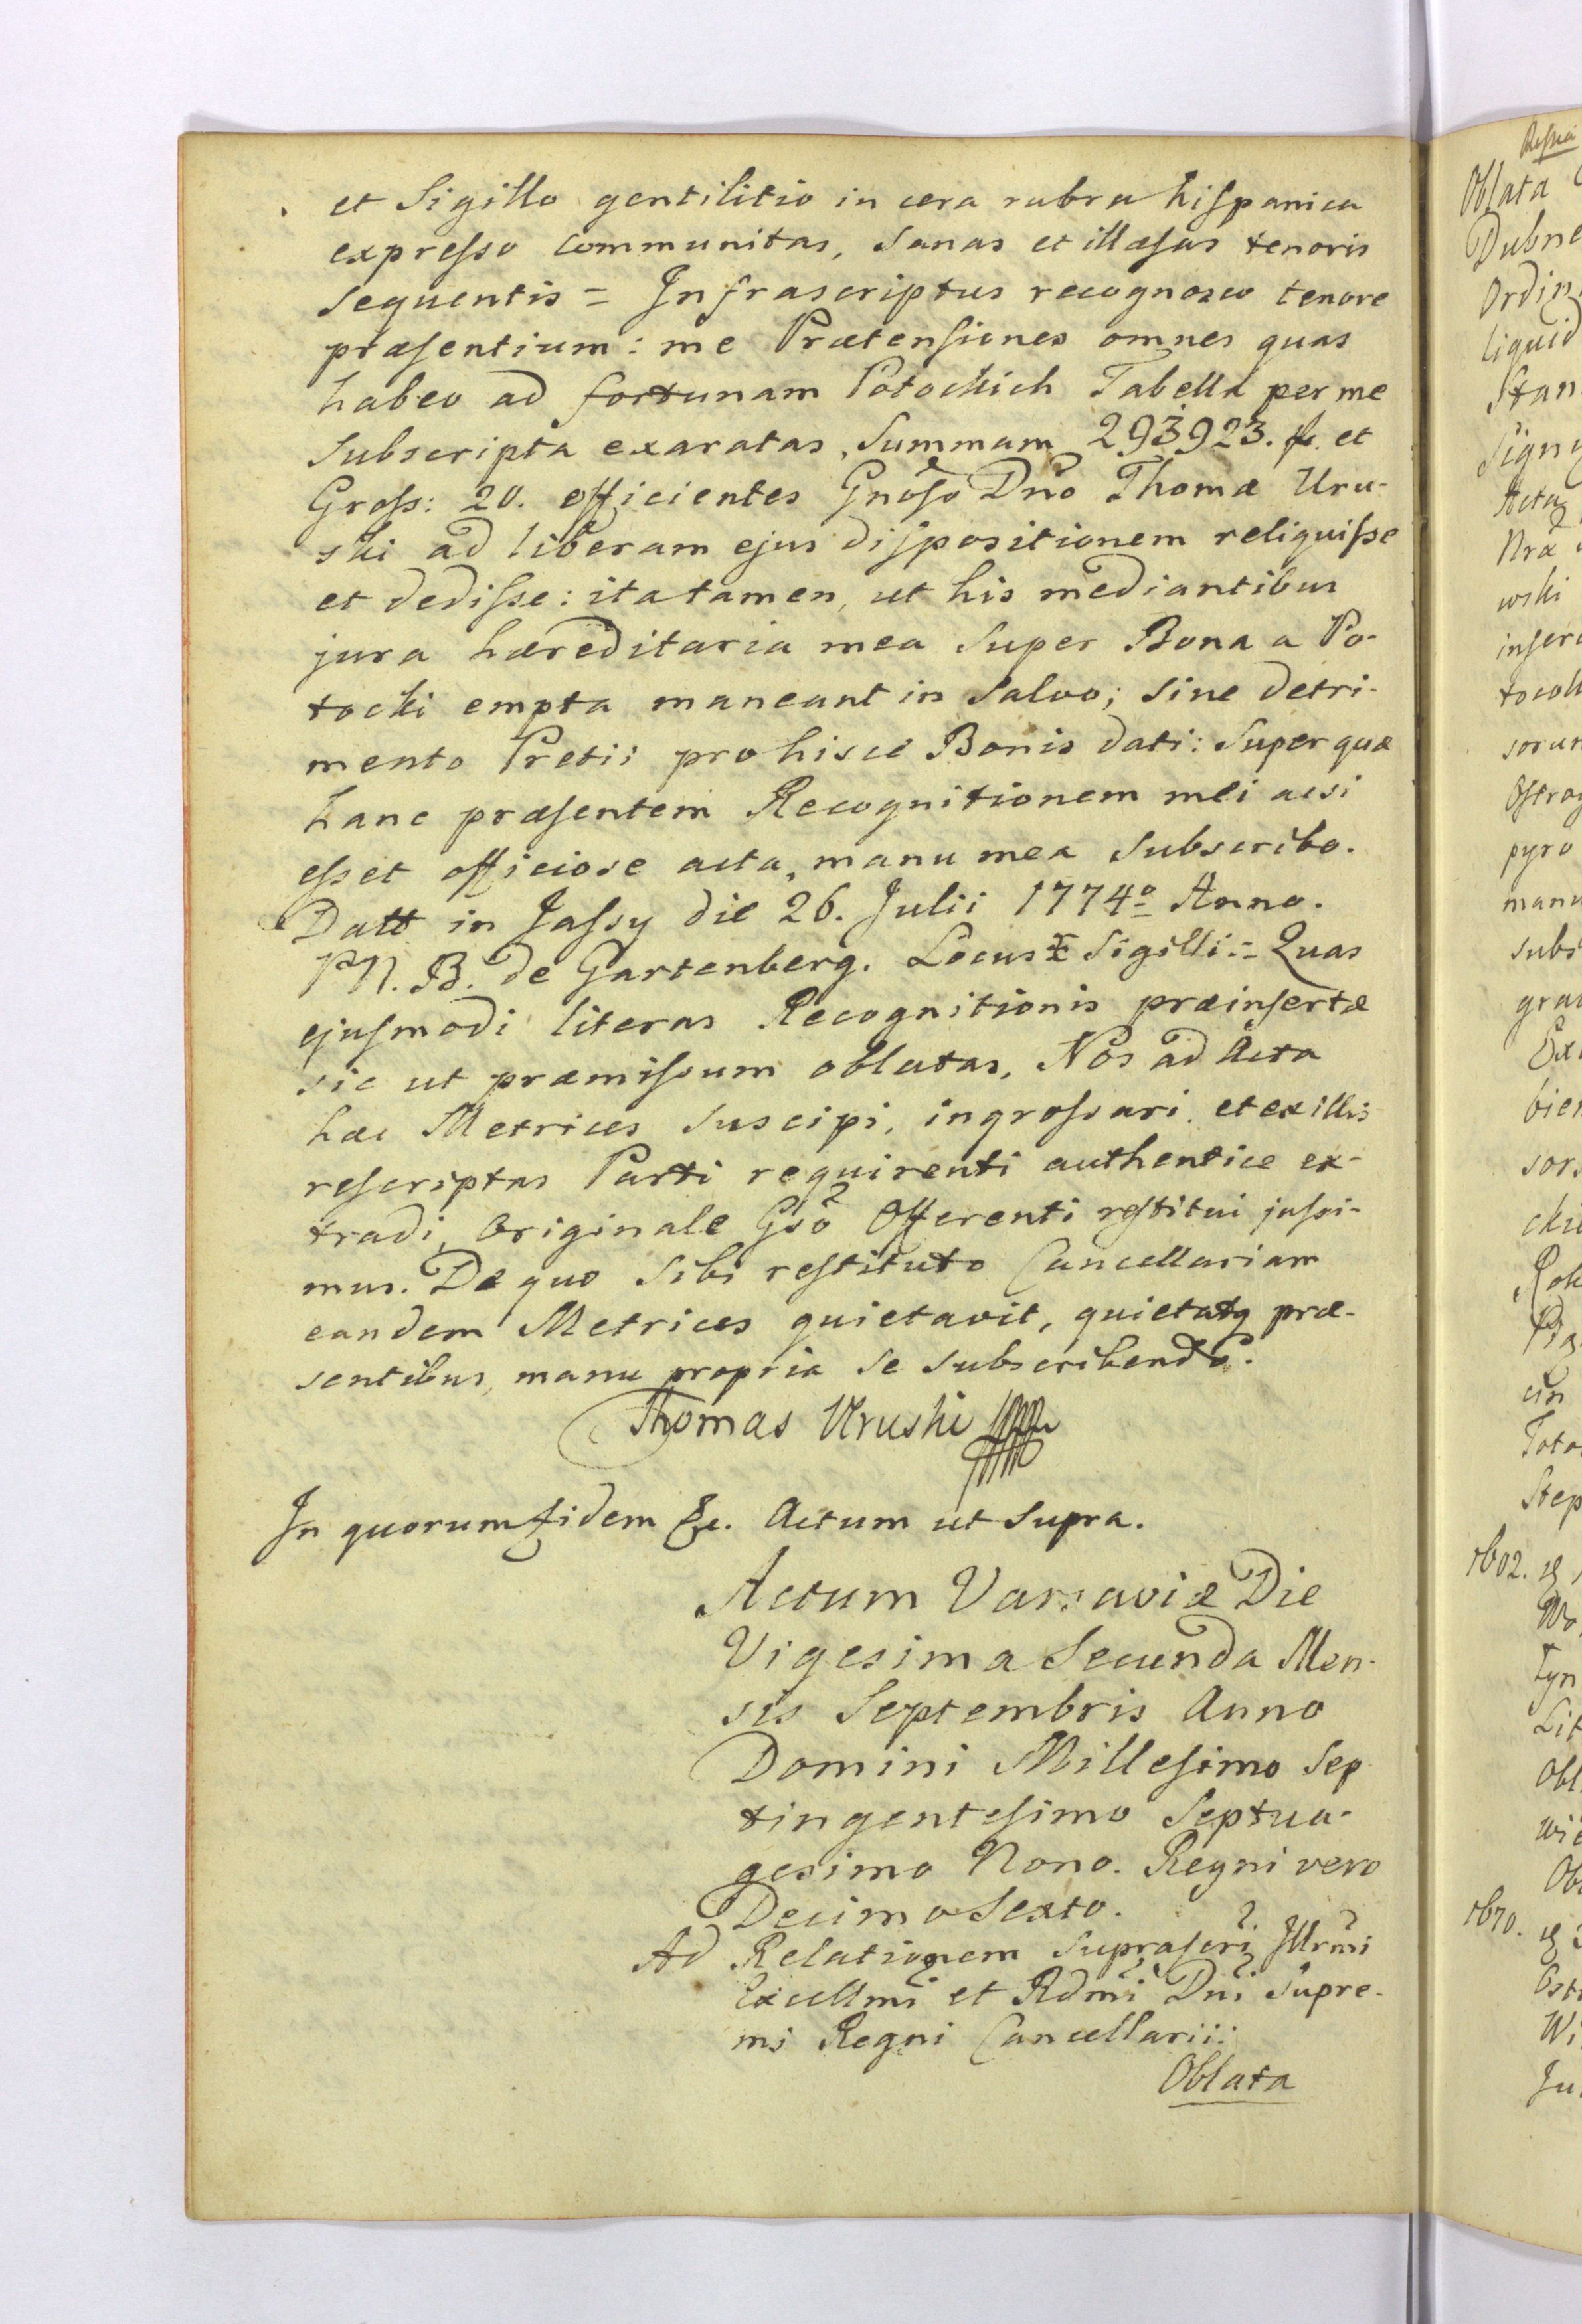 et Sigillo gentilitio in cera rubra hiſpanica
expreſso communitas, Sanas et illæſas tenoris
Sequentis = Infrascriptus recognosco tenore
præſentium: me Prætenſiones omnes quas
habeo ad fortunam Potockich Tabella per me
Subscripta exaratas, Summam 293923. fl. et
Groſs: 20. efficientes Gnõſo Dnõ Thomæ Uru-
ski ad liberam ejus diſpositionem reliquiſse
et dediſse: ita tamen, ut his mediantibus
jura hæreditaria mea Super Bona a Po-
tocki empta maneant in Salvo; Sine detri-
mento Pretii pro hisce Bonis dati: Super quæ
hanc præſentem Recognitionem mei acsi
eſset officiose acta, manu mea Subscribo.
Datt in Jaſsy die 26. Julii 1774º Anno.
P N. B. de Gartenberg. Locus Sigilli = Quas
ejuſmodi literas Recognitionis præinſertæ
sic ut præmiſsum oblatas, Nos ad Acta
hæc Metrices Suscipi, ingroſsari, et ex illis
reſcriptas Parti requirenti authentice ex-
tradi, Originale Gsõ Offerenti reſtitui juſsi-
mus. De quo Sibi reſtituto Cancellariam
eandem Metrices quietavit, quietatq præ-
sentibus, manu propria Se Subscribendo.
Thomas Uruski
In quorum fidem &c. Actum ut Supra.
Actum Varsaviæ Die
Vigesima Secunda Men-
sis Septembris Anno
Domini Milleſimo Sep
tingenteſimo Septua-
gesimo Nono. Regni vero
Decimo Sexto.
Ad Relationem Supraſcri Illrmi
Excellmi et Rdmi Dni Supre-
mi Regni Cancellarii:
Oblata
Oblata
Dubne
Ordin
liquid
Stan
Sign
Acta
Nræ
wski
inſer
tocoll
sorum
Oſtrog
pyro
manu
subs
gra
bie
sors
Toto
Step
1602.
Lit
Obl
1670.